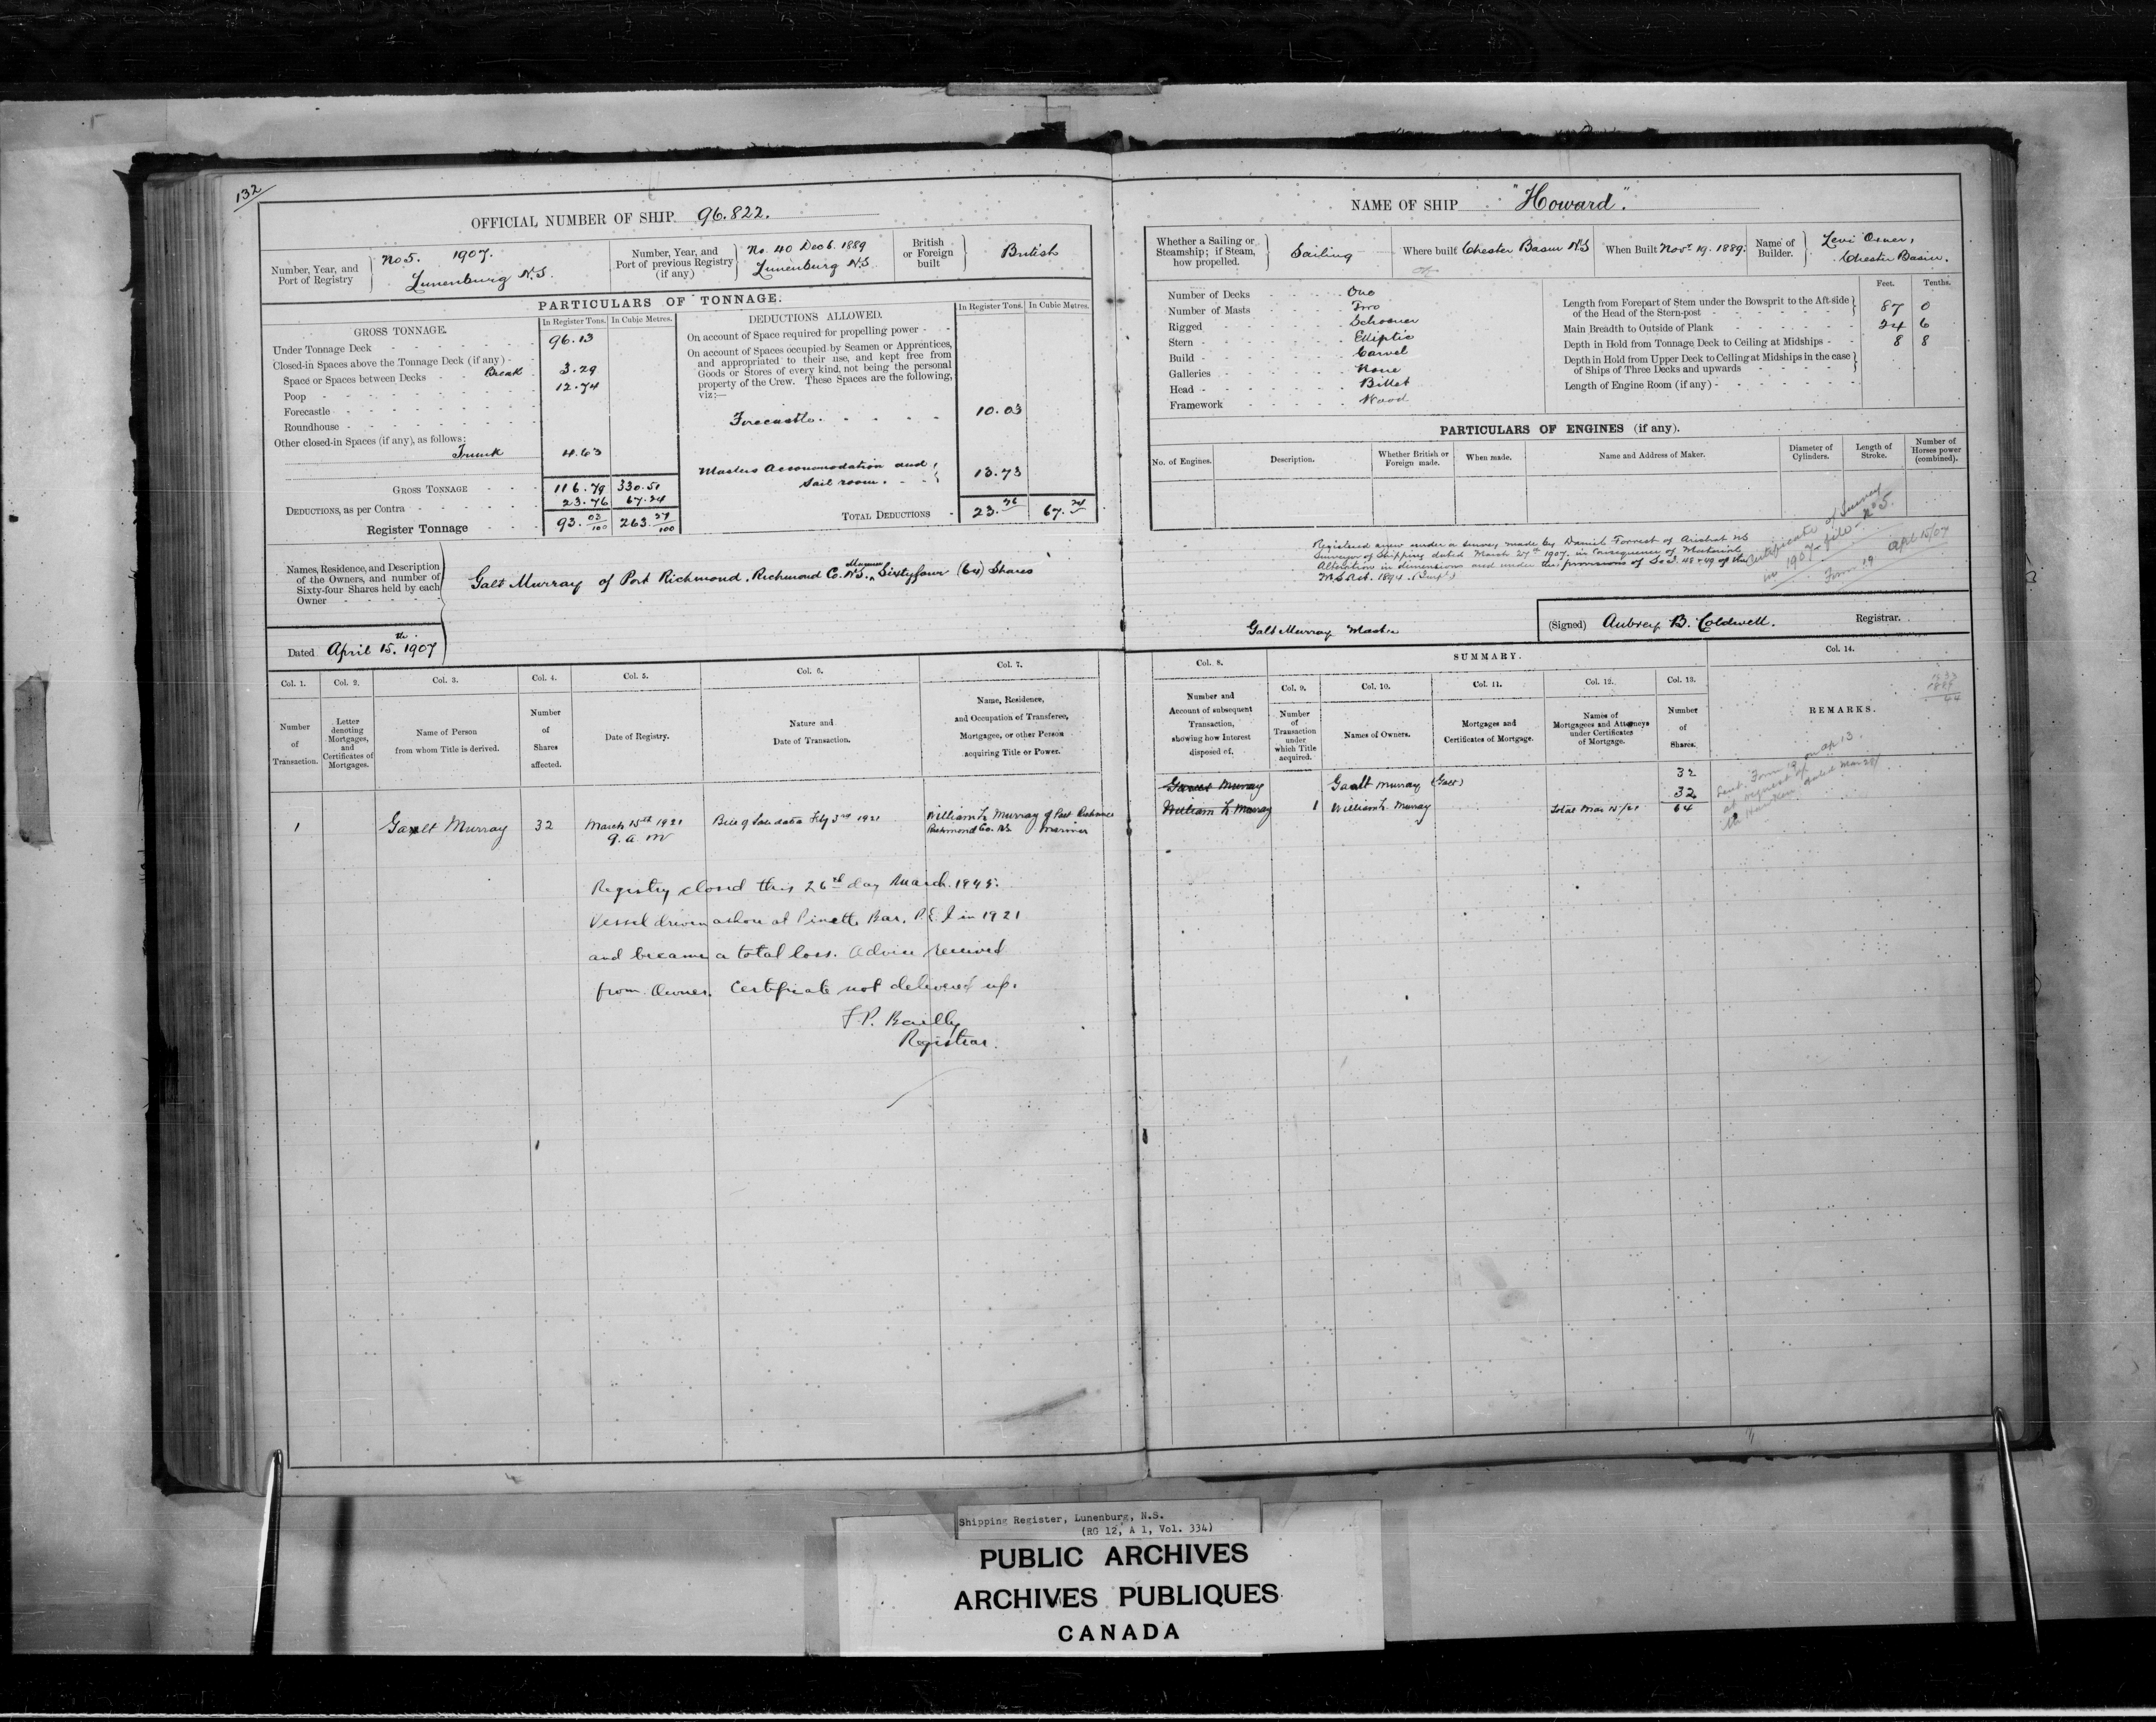 132
OFFICIAL NUMBER OF SHIP. 96.822.
Number, Year, and Port of Registry
No 5. 1907.
Lunenburg N.S.
Number, Year, and Port of previous Registry (if any)
No. 40 Dec 6. 1889
Lunenburg N.S
British or Foreign built
British
PARTICULARS OF TONNAGE.
GROSS TONNAGE.
In Register Tons.
In Cubic Metres.
Under Tonnage Deck 96.13
Closed-in Spaces above the Tonnage Deck (if any)
Space or Spaces between Decks Break 3.29
Poop 12.74
Forecastle
Roundhouse
Other closed-in Spaces (if any), as follows:
Trunk 4.63
GROSS TONNAGE 116.79 330.51
DEDUCTIONS, as per Contra 23.76 67.24
Register Tonnage 93.03/100 263.27/100
DEDUCTIONS ALLOWED.
In Register Tons.
In Cubic Metres.
On account of Space required for propelling power
On account of Spaces occupied by Seamen or Apprentices,
and appropriated to their use, and kept free from
Goods or Stores of every kind, not being the personal
property of the Crew. These Spaces are the following,
viz:—
Forecastle. 10.03
Masters Accommodation and
Sail room. 13.73
TOTAL DEDUCTIONS 23.76 67.24
Names, Residence, and Description
of the Owners, and number of
Sixty-four Shares held by each
Owner
Galt Murray of Port Richmond, Richmond Co. N.S., Mariner Sixty four (64) Shares
Dated April 15th. 1907
NAME OF SHIP "Howard".
Whether a Sailing or Steamship; if Steam, how propelled.
Sailing
Where built Chester Basin N.S
When Built Novr 19. 1889.
Name of Builder.
Levi Oxner,
Chester Basin.
Number of Decks One
Number of Masts Two
Rigged Schooner
Stern Elliptic
Build Carvel
Galleries None
Head Billet
Framework Wood
Feet. Tenths.
Length from Forepart of Stem under the Bowsprit to the Aft-side
of the Head of the Stern-post 87 0
Main Breadth to Outside of Plank 24 6
Depth in Hold from Tonnage Deck to Ceiling at Midships 8 8
Depth in Hold from Upper Deck to Ceiling at Midships in the case
of Ships of Three Decks and upwards
Length of Engine Room (if any)
PARTICULARS OF ENGINES (if any).
No. of Engines.
Description.
Whether British or Foreign made.
When made.
Name and Address of Maker.
Diameter of Cylinders.
Length of Stroke.
Number of Horses power (combined).
Registered anew under a survey made by Daniel Forrest of Arichat NS
Surveyor of Shipping dated March 27th 1907. in Consequence of Material
Alteration in dimensions and under the provisions of Sec. 48 & 49 of the
M.S. Act. 1894.
Certificate of Survey
in 1907 file No 5.
Form 19 Apl 15/07
Galt Murray Master
(Signed) Aubrey B. Coldwell. Registrar.
Col. 1. Col. 2. Col. 3. Col. 4. Col. 5. Col. 6. Col. 7.
Number of Transaction.
Letter denoting Mortgages, and Certificates of Mortgages.
Name of Person from whom Title is derived.
Number of Shares affected.
Date of Registry.
Nature and Date of Transaction.
Name, Residence, and Occupation of Transferee, Mortgagee, or other Person acquiring Title or Power.
1 Gault Murray 32 March 15th 1921 Bill of Sale dated Feby 3rd 1921 William L Murray of Port Richmond
9. a. m Richmond Co. NS Mariner
Registry closed this 26th day March. 1945.
Vessel driven ashore at Pinette Bar, P.E.I in 1921
and became a total loss. Advice received
from Owner. Certificate not delivered up.
F.P. Bailly
Registrar.
Col. 8.
Number and Account of subsequent Transaction, showing how Interest disposed of.
SUMMARY.
Col. 9. Col. 10. Col. 11. Col. 12. Col. 13. Col. 14.
Number of Transaction under which Title acquired.
Names of Owners.
Mortgages and Certificates of Mortgage.
Names of Mortgagees and Attorneys under Certificates of Mortgage.
Number of Shares.
REMARKS.
Murray Gault Murray (Galt) 32
William L Murray 1 William L. Murray 32
Total Mar 15/21 64
Sent Form 19 on Ap 13.
at request of
dated Mar 29/
Shipping Register, Lunenburg, N.S.
(RG 12, A 1, Vol. 334)
PUBLIC ARCHIVES
ARCHIVES PUBLIQUES
CANADA